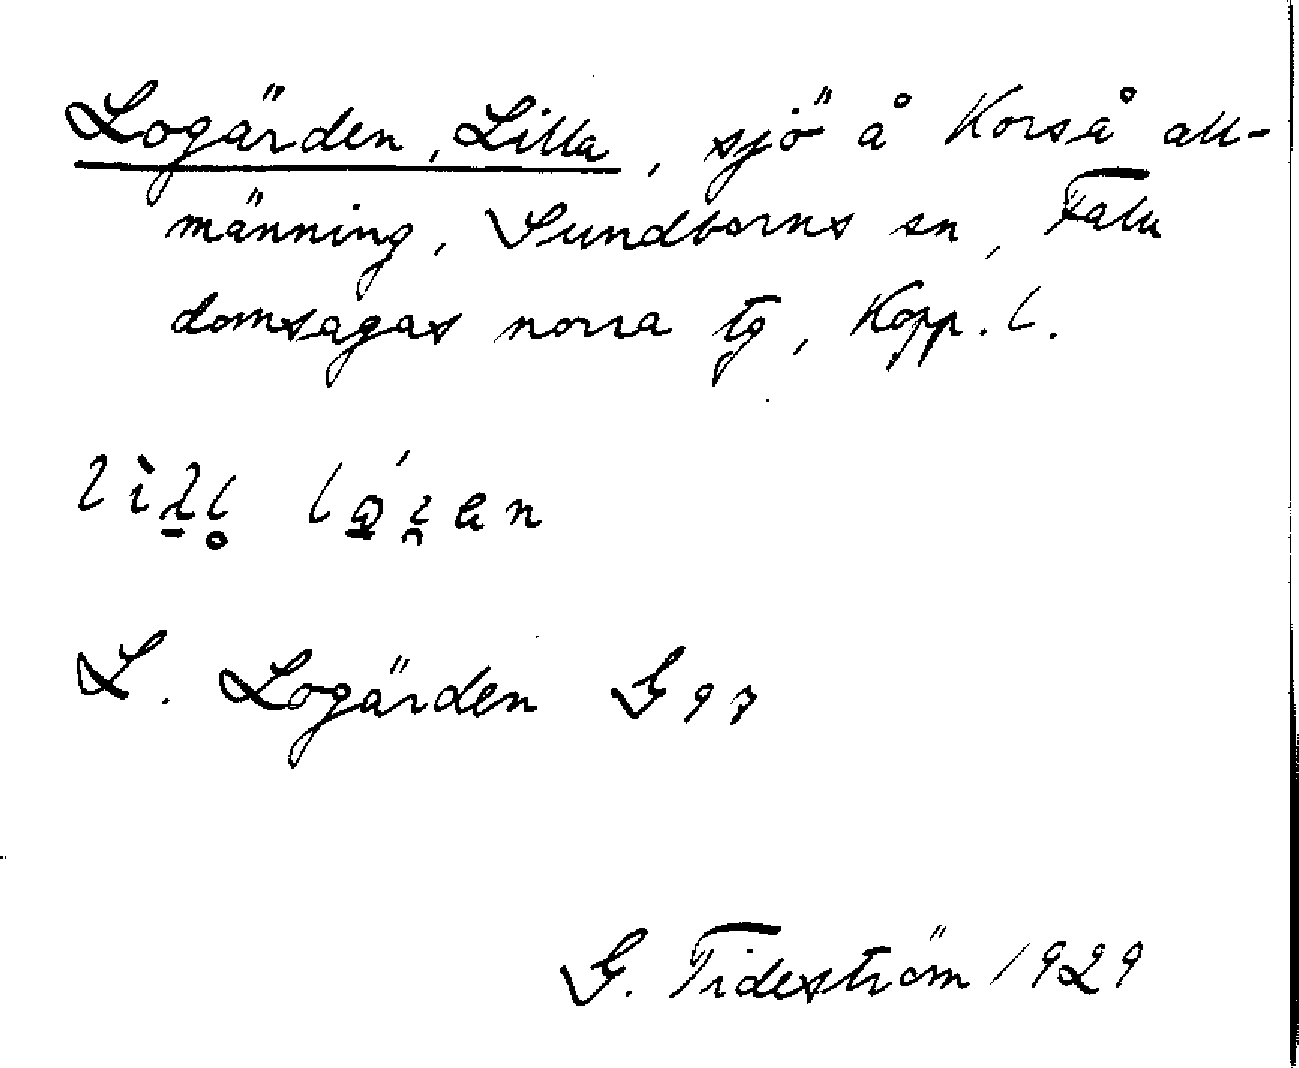 Logärden, Lilla, sjö å Korså all-
männing, Sundborns sn, Falu
domsagas norra tg, Kopp. l.
L. Logärden G 97
G. Tideström 1929